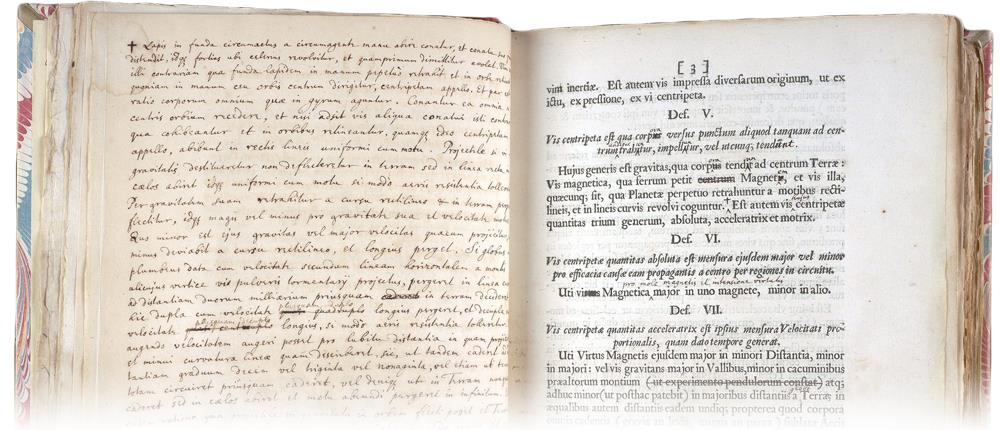 ✝ Lapis in funda circumactus a circumagente manu abire conatur, et conatu suo
distendit, idqȝ fortius ubi celerius revolvitur, et quamprimum dimittitur avolat. Vim
illi contrariam qua funda lapidem in manum perpetuo retrahit et in orbe retinet
quoniam in manum ceu orbis centrum dirigitur, centripetam appello. Et par est
ratio corporum omnium quæ in gyrum aguntur. Conantur ea omnia a
centris orbium recedere, et nisi adsit vis aliqua conatui isti contraria
qua cohibeantur et in orbibus retineantur, quamqȝ ideo centripetam
appello, abibunt in rectis lineis uniformi cum motu. Projectile si vi
gravitatis destitueretur non deflecteretur in terram sed in linea recta
cælos abiret idqȝ uniformi cum motu si modo aeris resistentia tolleretur
Per gravitatem suam retrahitur a cursu rectilineo & in terram perpetuo
flectitur, idqȝ magis vel minus pro gravitate sua et velocitate motus.
Quo minor est ejus gravitas vel major velocitas quacum projicitur,
minus deviabit a cursu rectilineo, et longius perget. Si globus
plumbeus data cum velocitate secundum lineam horizontalem a montis
alicujus vertice vi pulveris tormentarij projectus, pergeret in linea curva
ad distantiam duorum milliarium priusquam in terram decideret
hic dupla cum velocitate quasi duplo longius pergeret, et decupla cum
velocitate quasi decuplo longius, si modo aeris resistentia tolleretur.
augendo velocitatem augeri posset pro lubitu distantia in quam projiceretur
et minui curvatura lineæ quam describeret, sic, ut tandem caderet ad
tantiam graduum decem vel triginta vel nonaginta, vel etiam ut terram
totam circuiret priusquam caderet, vel deniqȝ ut in Terram nunquam
caderet sed in cælos abiret et motu abeundi pergeret in infinitum.
[ 3 ]
vim inertiæ. Est autem vis impressa diversarum originum, ut ex
ictu, ex pressione, ex vi centripeta.
Def. V.
Vis centripeta est qua corpora versus punctum aliquod tanquam ad cen-
trum undique trahuntur, impelluntur, vel utcunq; tendunt.
Hujus generis est gravitas, qua corpora tendunt ad centrum Terræ:
Vis magnetica, qua ferrum petit centrum Magnetem, et vis illa,
quæcunq; sit, qua Planetæ perpetuo retrahuntur a motibus recti-
lineis, et in lineis curvis revolvi coguntur.✝ Est autem vis hujus centripetæ
quantitas trium generum, absoluta, acceleratrix et motrix.
Def. VI.
Vis centripetæ quantitas absoluta est mensura ejusdem major vel minor
pro efficacia causæ eam propagantis a centro per regiones in circuitu.
pro mole magnetis et intensione virtutis
Uti virtus Magnetica major in uno magnete, minor in alio.
Def. VII.
Vis centripetæ quantitas acceleratrix est ipsius mensura Velocitati pro-
portionalis, quam dato tempore generat.
Uti Virtus Magnetis ejusdem major in minori Distantia, minor
in majori: vel vis gravitans major in Vallibus, minor in cacuminibus
præaltorum montium (ut experimento pendulorum constat) atq;
adhuc minor (ut posthac patebit) in majoribus distantiis a Terra; in
æqualibus autem distantiis eadem undiq; propterea quod corpora